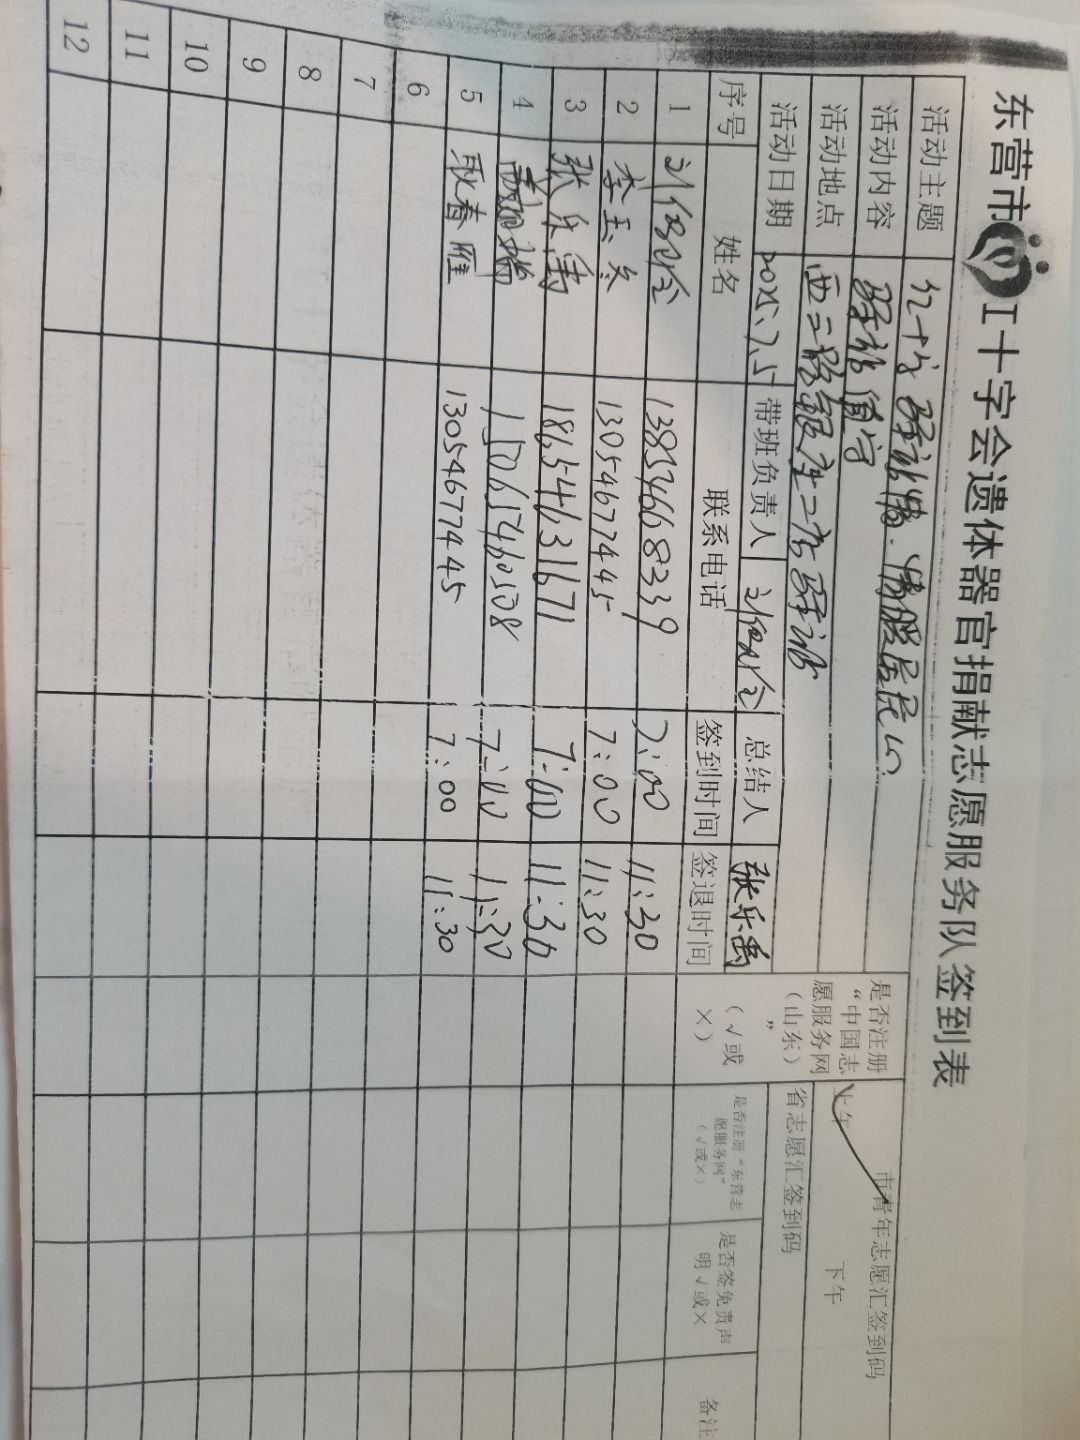 东营市 工十字会遗体器官捐献志愿服务队签到表
活动主题 红十字驿站情·情暖居民心
活动内容 驿站值守
活动地点 西二路银座二店驿站
活动日期 2025.7.5 带班负责人 总结人 张乐禹
是否注册“中国志愿服务网（山东）”（√或×）
市青年志愿汇签到码
上午 下午
省志愿汇签到码
序号 姓名 联系电话 签到时间 签退时间 是否注册“东营志愿服务网”（√或×） 是否签免责声明√或×  备注
1 13854668339 7:00 11:30
2 李玉冬 13054677445 7:00 11:30
3 张乐禹 18654631671 7:00 11:30
4 15065460508 7:00 11:30
5 耿春雁 13054677445 7:00 11:30
6
7
8
9
10
11
12